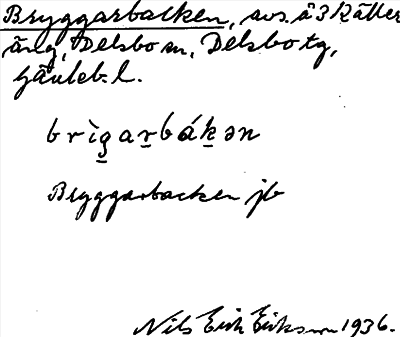 Bryggarbacken, avs. å 3 Käller
äng, Delsbo sn, Delsbo tg,
Gävleb. l.
brìg̱aṟbáḵən
Bryggarbacken jb
Nils Erik Eriksson 1936.